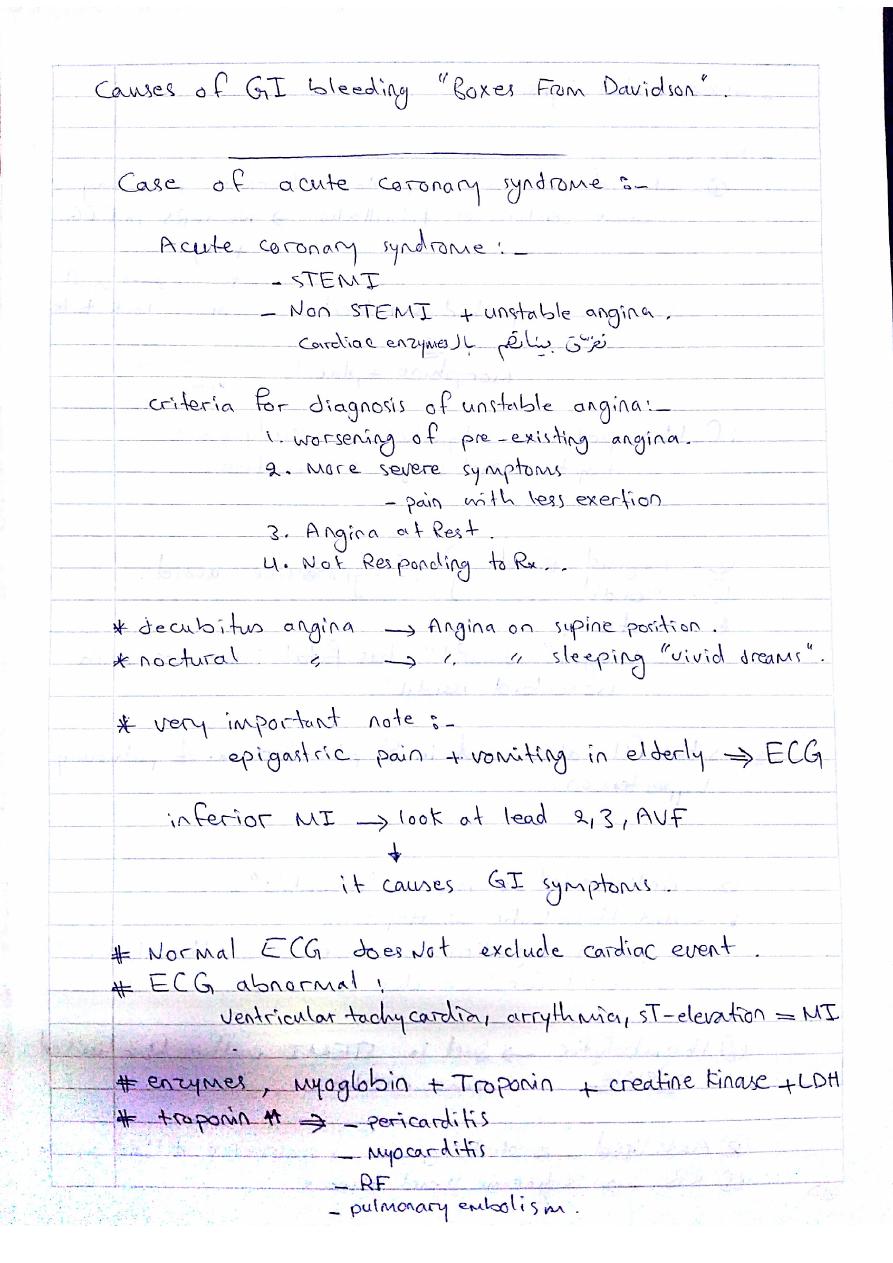 Causes of GI bleeding "Boxes From Davidson".
Case of acute coronary syndrome :-
Acute coronary syndrome :-
- STEMI
- Non STEMI + unstable angina.
نفرق بيناتهم بال cardiac enzymes
criteria for diagnosis of unstable angina:-
1. worsening of pre-existing angina.
2. More severe symptoms
- pain with less exertion
3. Angina at Rest.
4. Not Responding to Rx...
* decubitus angina → Angina on supine position.
* noctural " → " " sleeping "vivid dreams".
* very important note :-
epigastric pain + vomiting in elderly ⇒ ECG
inferior MI → look at lead 2,3, AVF
↓
it causes GI symptoms.
# Normal ECG does Not exclude cardiac event.
# ECG abnormal :
ventricular tachycardia, arrythmia, ST-elevation = MI
# enzymes, Myoglobin + Troponin + creatine kinase + LDH
# troponin ⇈ ⇒ - pericarditis
- Myocarditis
- RF
- pulmonary embolism.